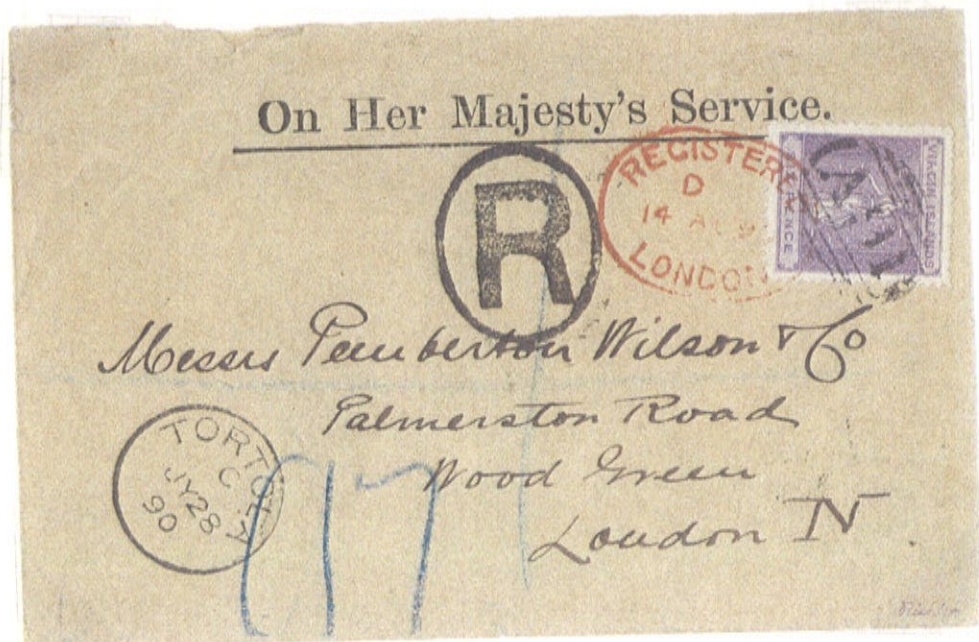 On Her Majesty's Service.
REGISTERED
D
14 AU 9
LONDON
VIRGIN ISLANDS
PENCE
R
Messrs Pemberton Wilson & Co
Palmerston Road
Wood Green
London N.
TORTOLA
C
JY 28
90